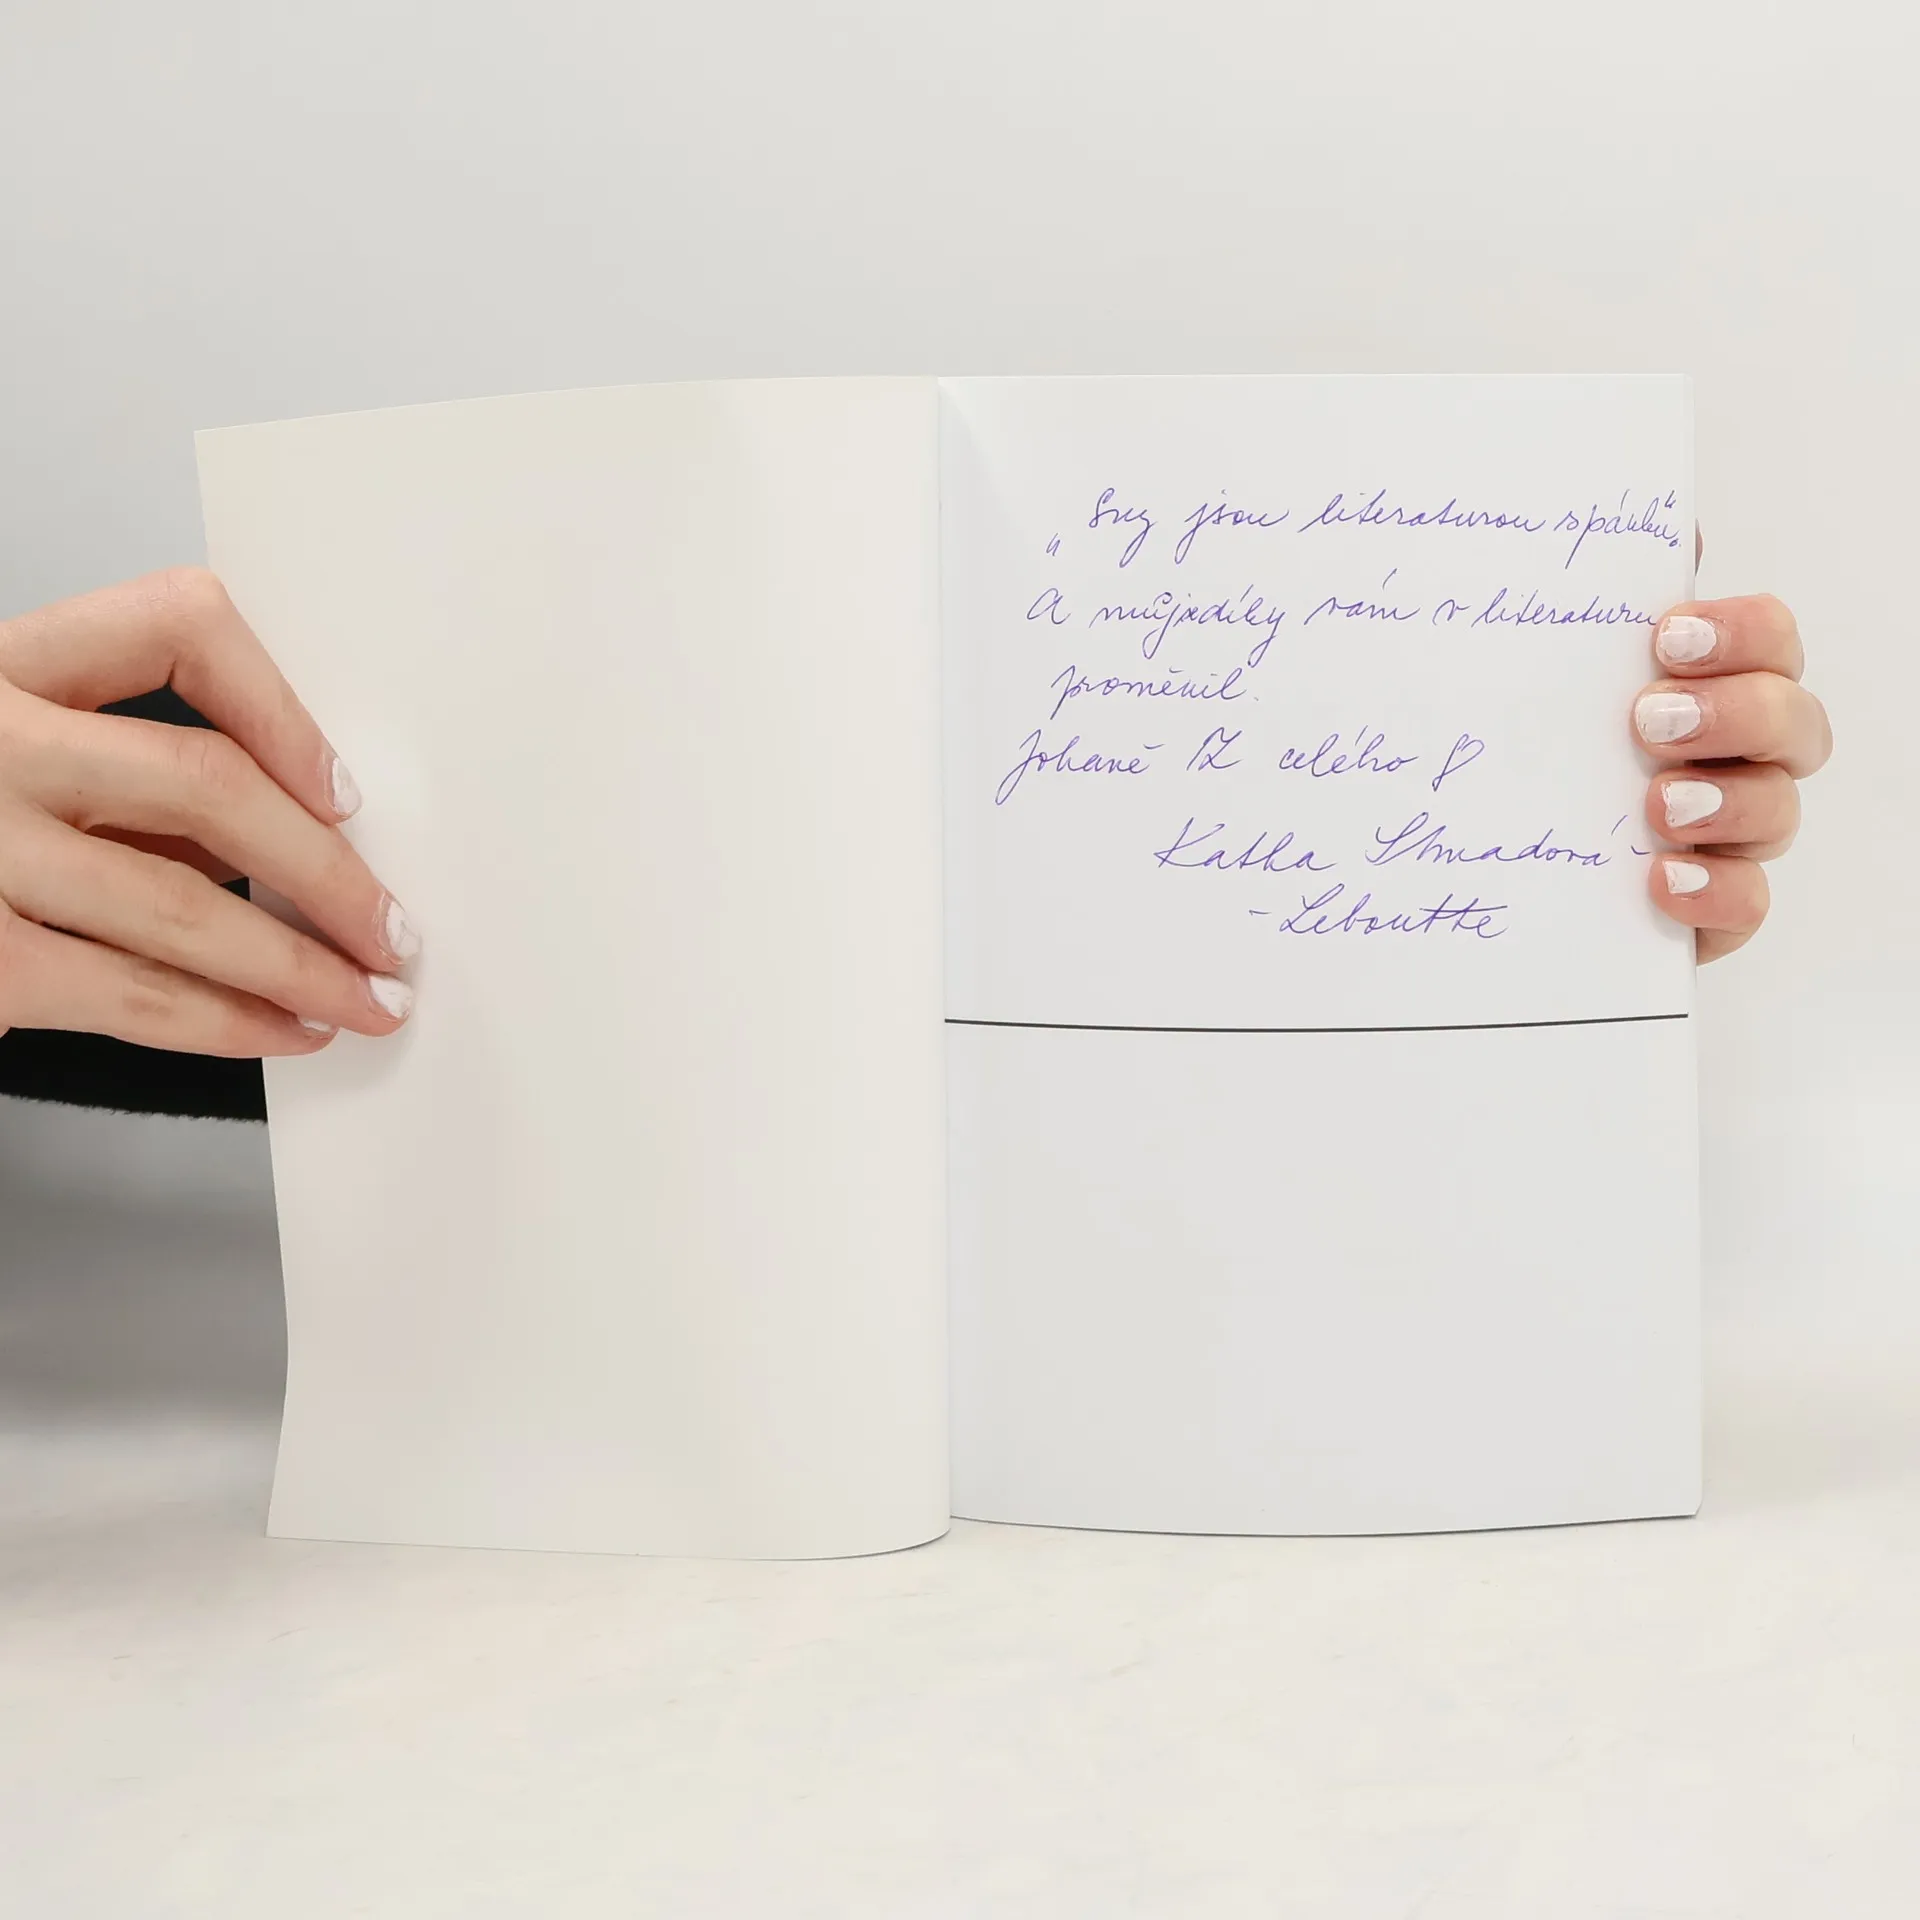 „Sny jsou literaturou spánku“.
A můj díky vám v literaturu
proměnil.
Johaně Z celého ♡
Katka Strnadová -
- Leboutte